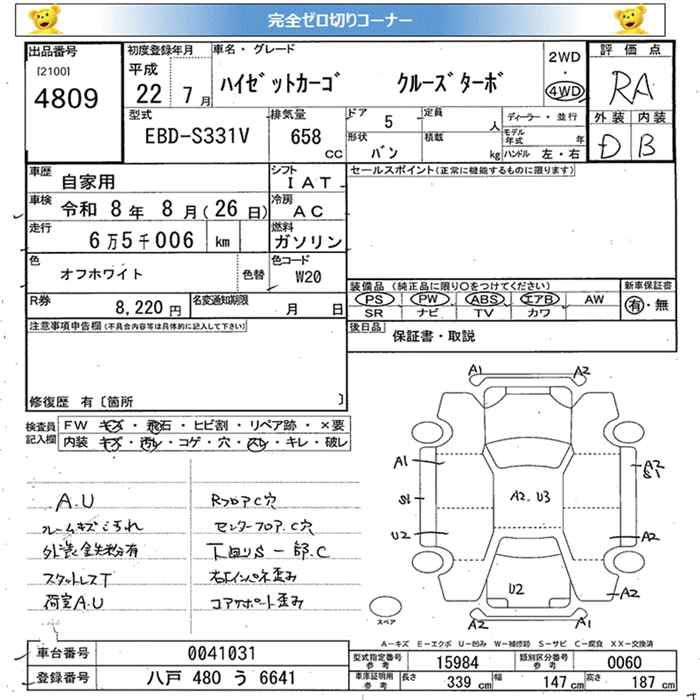 完全ゼロ切りコーナー
出品番号
[2100]
4809
初度登録年月
平成
22 7 月
車名・グレード
ハイゼットカーゴ クルーズターボ
2WD
・
4WD
評価点
RA
外装 内装
D B
型式
EBD-S331V
排気量
658
CC
ドア 5
形状 バン
定員 人
積載 kg
ディーラー・並行
モデル年式 年
ハンドル 左・右
車歴 自家用
シフト IAT
車検 令和 8 年 8 月(26 日)
冷房 AC
走行 6万5千006 km
燃料 ガソリン
色 オフホワイト 色替
色コード W20
R券 8,220 円
名変通知期限 月 日
セールスポイント(正常に機能するものに限ります)
装備品(純正品に限り○をつけてください)
新車保証書
PS PW ABS エアB AW
有・無
SR ナビ TV カワ
後日品 保証書・取説
注意事項申告欄(不具合内容等は具体的に記入して下さい)
修復歴 有〔箇所 〕
検査員記入欄
FW キズ・飛石・ヒビ割・リペア跡・×要
内装 キズ・汚レ・コゲ・穴・スレ・キレ・破レ
A.U
フレームキズこぢれ
外装鉄粉有
スタットレスT
荷室A.U
RフロアC穴
センターフロア.C穴
下回りS一部.C
右エインパネ歪み
コアサポート歪み
A1 A2
A1
S1
U2
A2.U3
A2
S1
A2
U2
A2
A2 A2
スペア
A-キズ E-エクボ U-凹み W-補修跡 S-サビ C-腐食 XX-交換済
車台番号 0041031
登録番号 八戸 480 う 6641
型式指定番号 参考 15984
類別区分番号 参考 0060
車庫証明用 参考 長さ 339 cm 幅 147 cm 高さ 187 cm